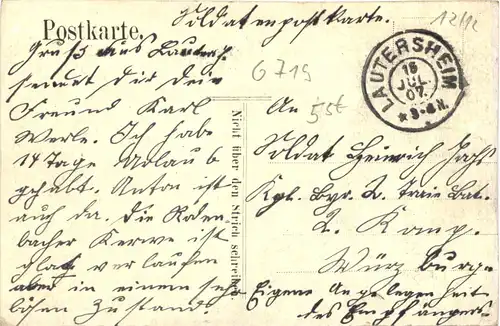 Postkarte.
Soldatenpostkarte.
12/12
6719
5st
LAUTERSHEIM
16
JUL
07.
* 8-9 N. *
Gruß aus Lautersh.
sendet dir dein
Freund Karl
Werle. Ich habe
14 Tage Urlaub
gehabt. Anton ist
auch da. Die Roden-
bacher Kerwe ist
glatt verlaufen
aber in einem sehr
bösen Zustand.
Nicht über den Strich schreiben
An
Soldat Heinrich
Kgl. Byr. 2. Train Bat.
2. Komp.
Würzburg
Eigene Angelegenheit
des Empfängers